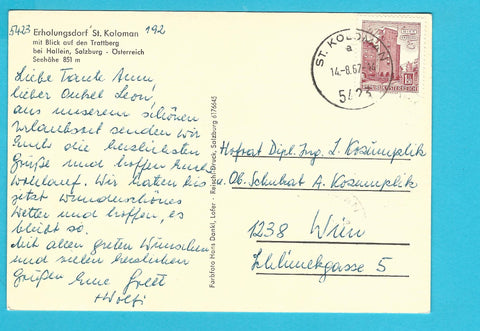 5423 Erholungsdorf St. Koloman 192
mit Blick auf den Trattberg
bei Hallein, Salzburg - Österreich
Seehöhe 851 m
Liebe Tante Anni
lieber Onkel Leon,
aus unserem schönen
Urlaubsort senden wir
Euch die herzlichsten
Grüße und hoffen Euch
wohlauf. Wir haben bis
jetzt wunderschönes
Wetter und hoffen, es
bleibt so.
Mit allen guten Wünschen
und vielen herzlichen
Grüßen Eure Greti
+ Wolfi
Farbfoto Hans Denkl, Lofer - Reisch-Druck, Salzburg 6176645
ST. KOLOMAN
a
14-8.67
5423
REPUBLIK ÖSTERREICH
Hofrat Dipl. Ing. L. Kosumplik
u. Ob. Schulrat A. Kosumplik
1238 Wien
5